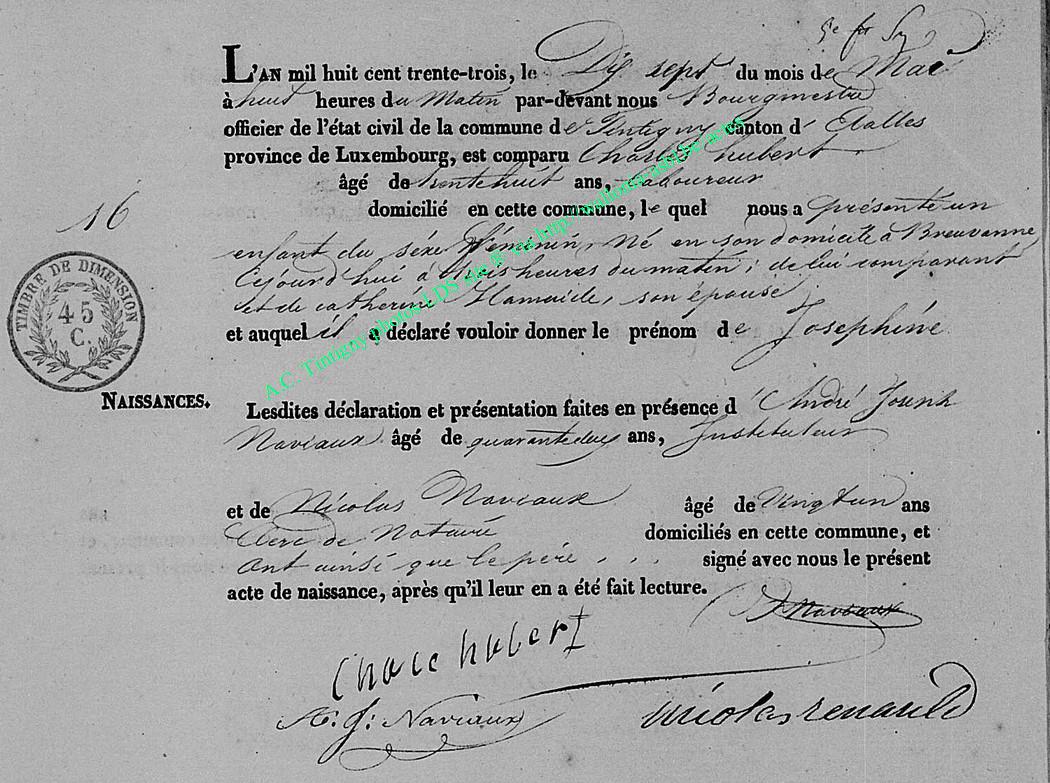 L'AN mil huit cent trente-trois, le Dix sept du mois de Mai
à huit heures du Matin par-devant nous Bourgmestre
officier de l'état civil de la commune de Tintigny canton d' Etalles
province de Luxembourg, est comparu Charles hubert
âgé de trentehuit ans, Laboureur
16
domicilié en cette commune, le quel nous a présenté un
enfant du séxe féminin, Né en son domicile à Breuvanne,
Cejourd'hui à trois heures du matin; de lui comparant
et de catherine Hamaide, son épouse
TIMBRE DE DIMENSION
45
C.
et auquel il a déclaré vouloir donner le prénom de Josephine
NAISSANCES.
Lesdites déclaration et présentation faites en présence d' André Joseph
Naviaux âgé de quarantedeux ans, Instituteur
et de Nicolas Naviaux âgé de Vingtun ans
Clerc de Notaire domiciliés en cette commune, et
ont ainsi que le père . . . signé avec nous le présent
acte de naissance, après qu'il leur en a été fait lecture.
Naviaux
hubert
A: J: Naviaux
nicolas renauld
A.C. Tintigny photos LDS site ® via